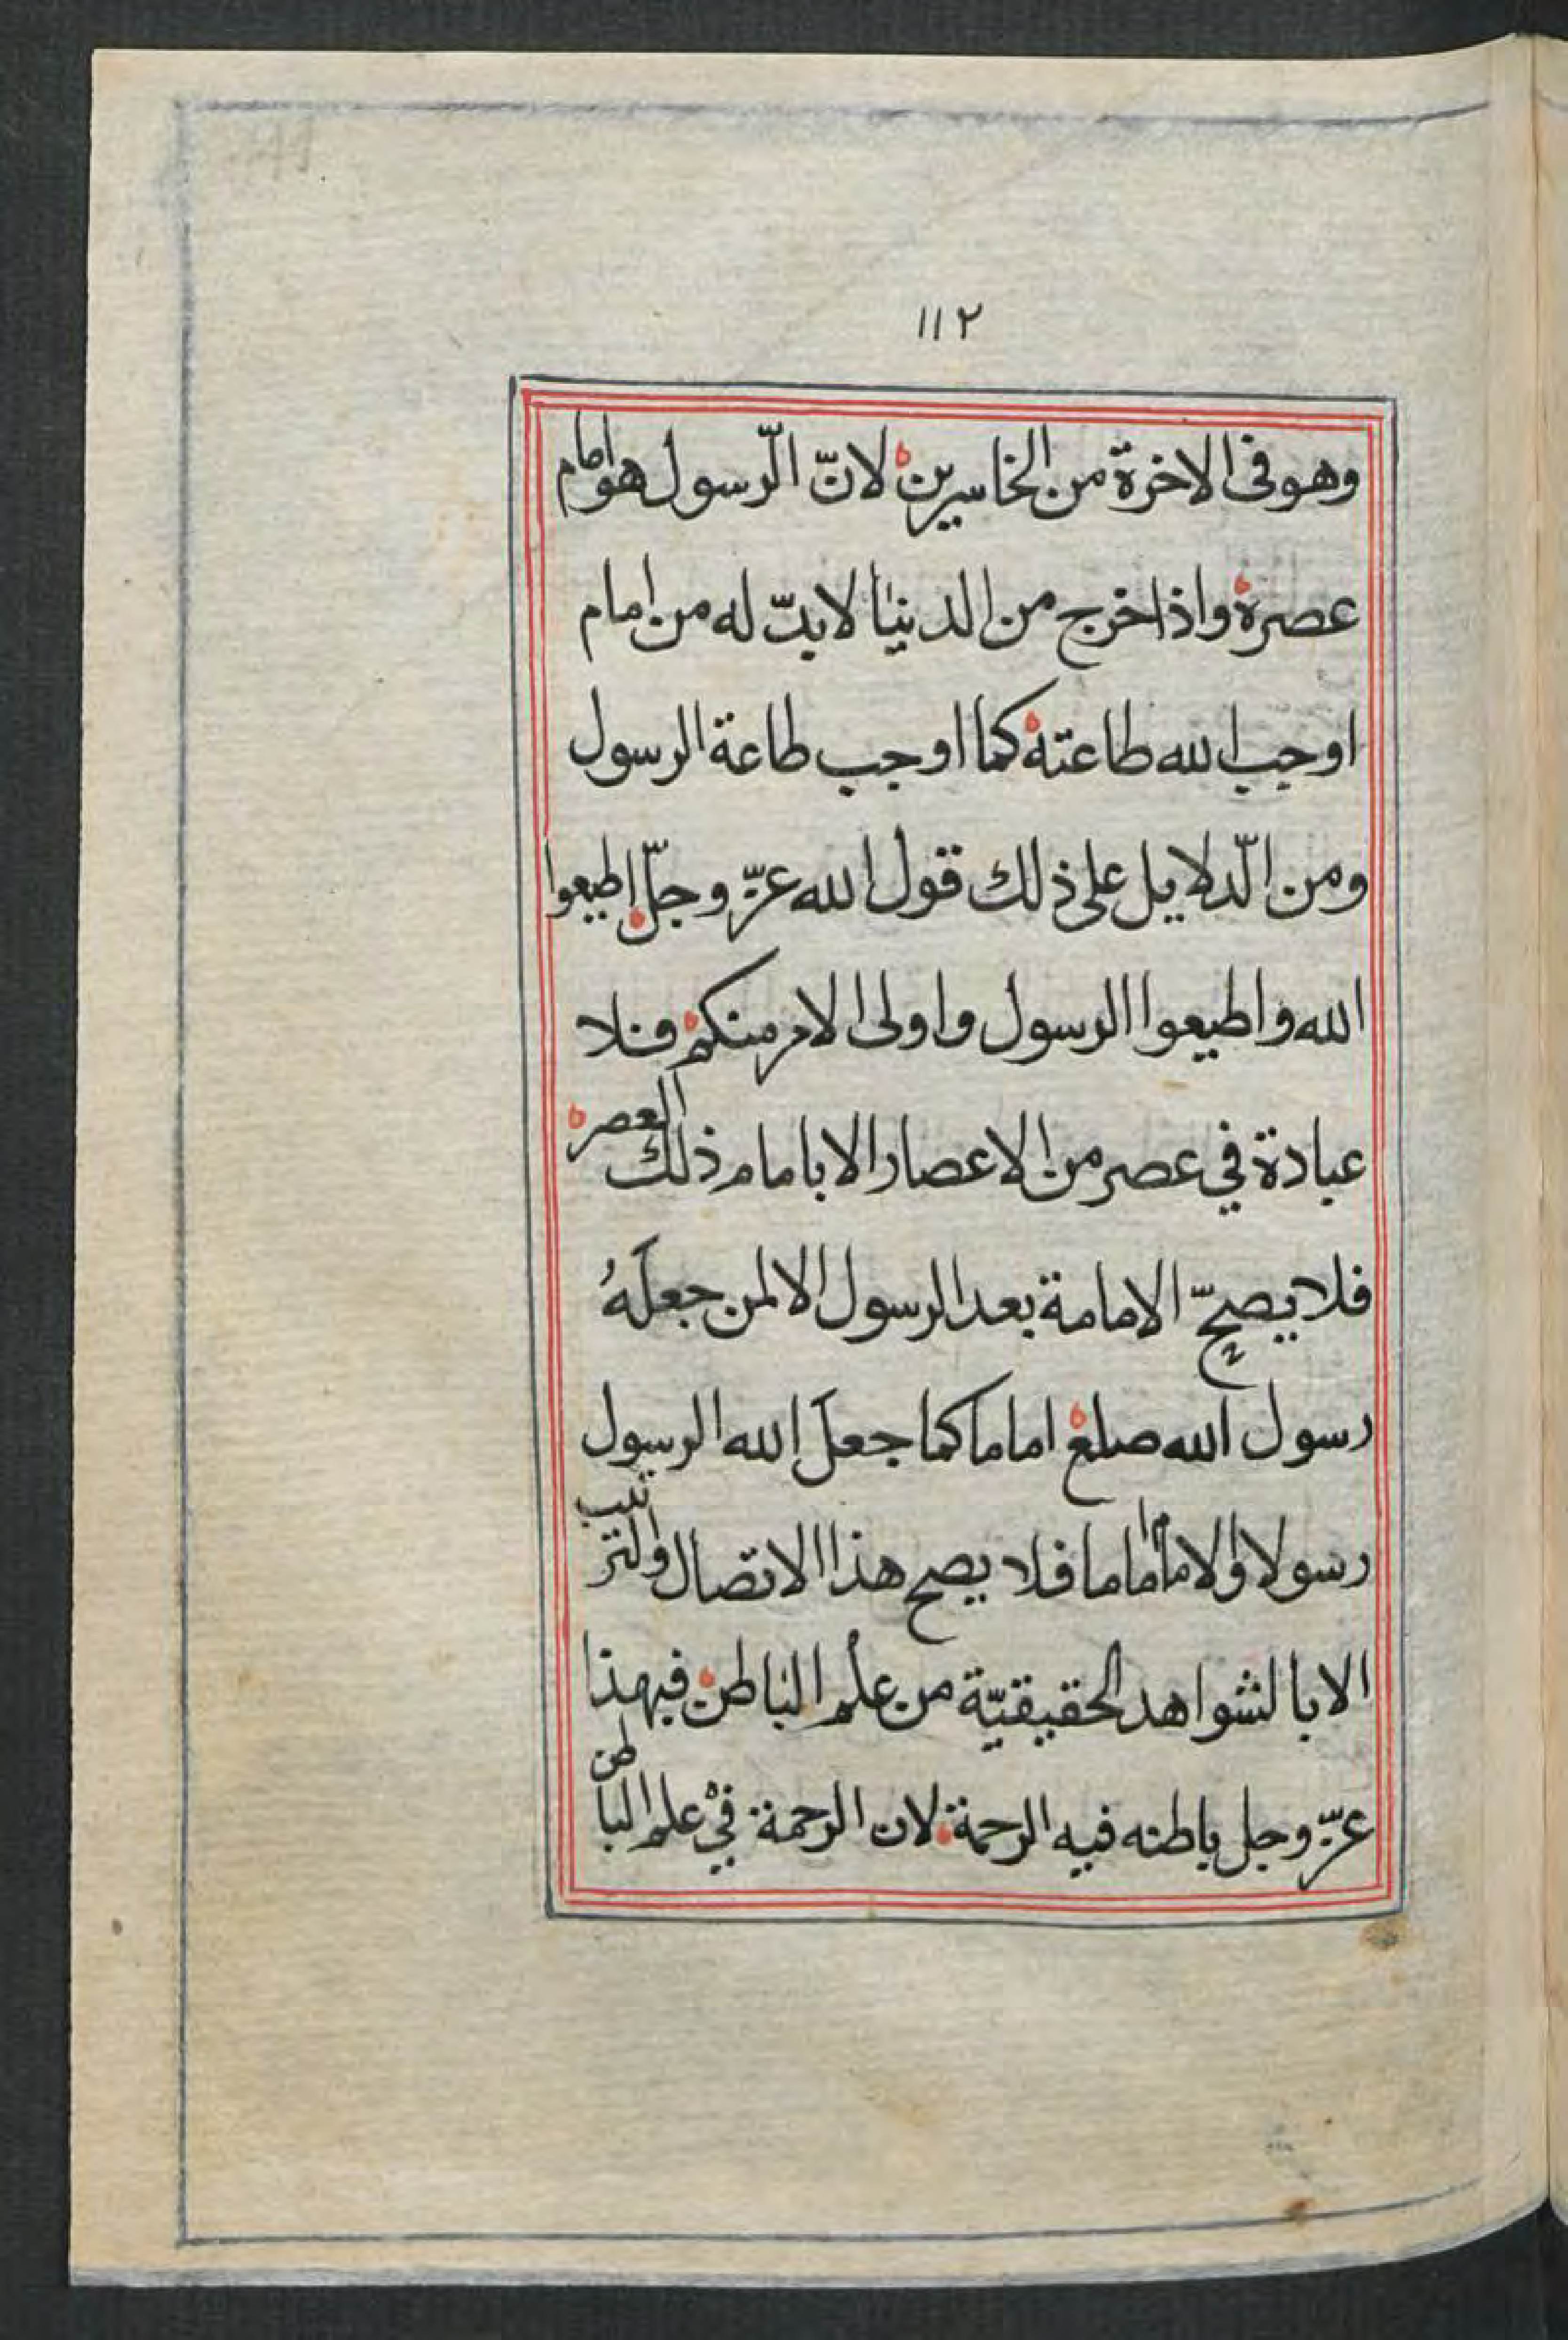 ١١٢
وهو فى الاخرة من الخاسرين لانّ الرّسول هو امام
عصره واذا خرج من الدنيا لا بدّ له من امام
اوجب الله طاعته كما اوجب طاعة الرسول
ومن الّدلايل على ذلك قول الله عزّ وجلّ اطيعوا
الله واطيعوا الرسول واولى الامر منكم فلا
عبادة في عصر من الاعصار الا بامام ذلك العصر
فلا يصحّ الامامة بعد الرسول الا لمن جعلَهُ
رسول الله صلع اماما كما جعلَ الله الرسول
رسولا والامام اماما فلا يصح هذا الاتصال والترتيب
الا بالشواهد الحقيقيّة من علم الباطن فبهذا
عزّ وجل باطنه فيه الرحمة لان الرحمة في علم الباطن